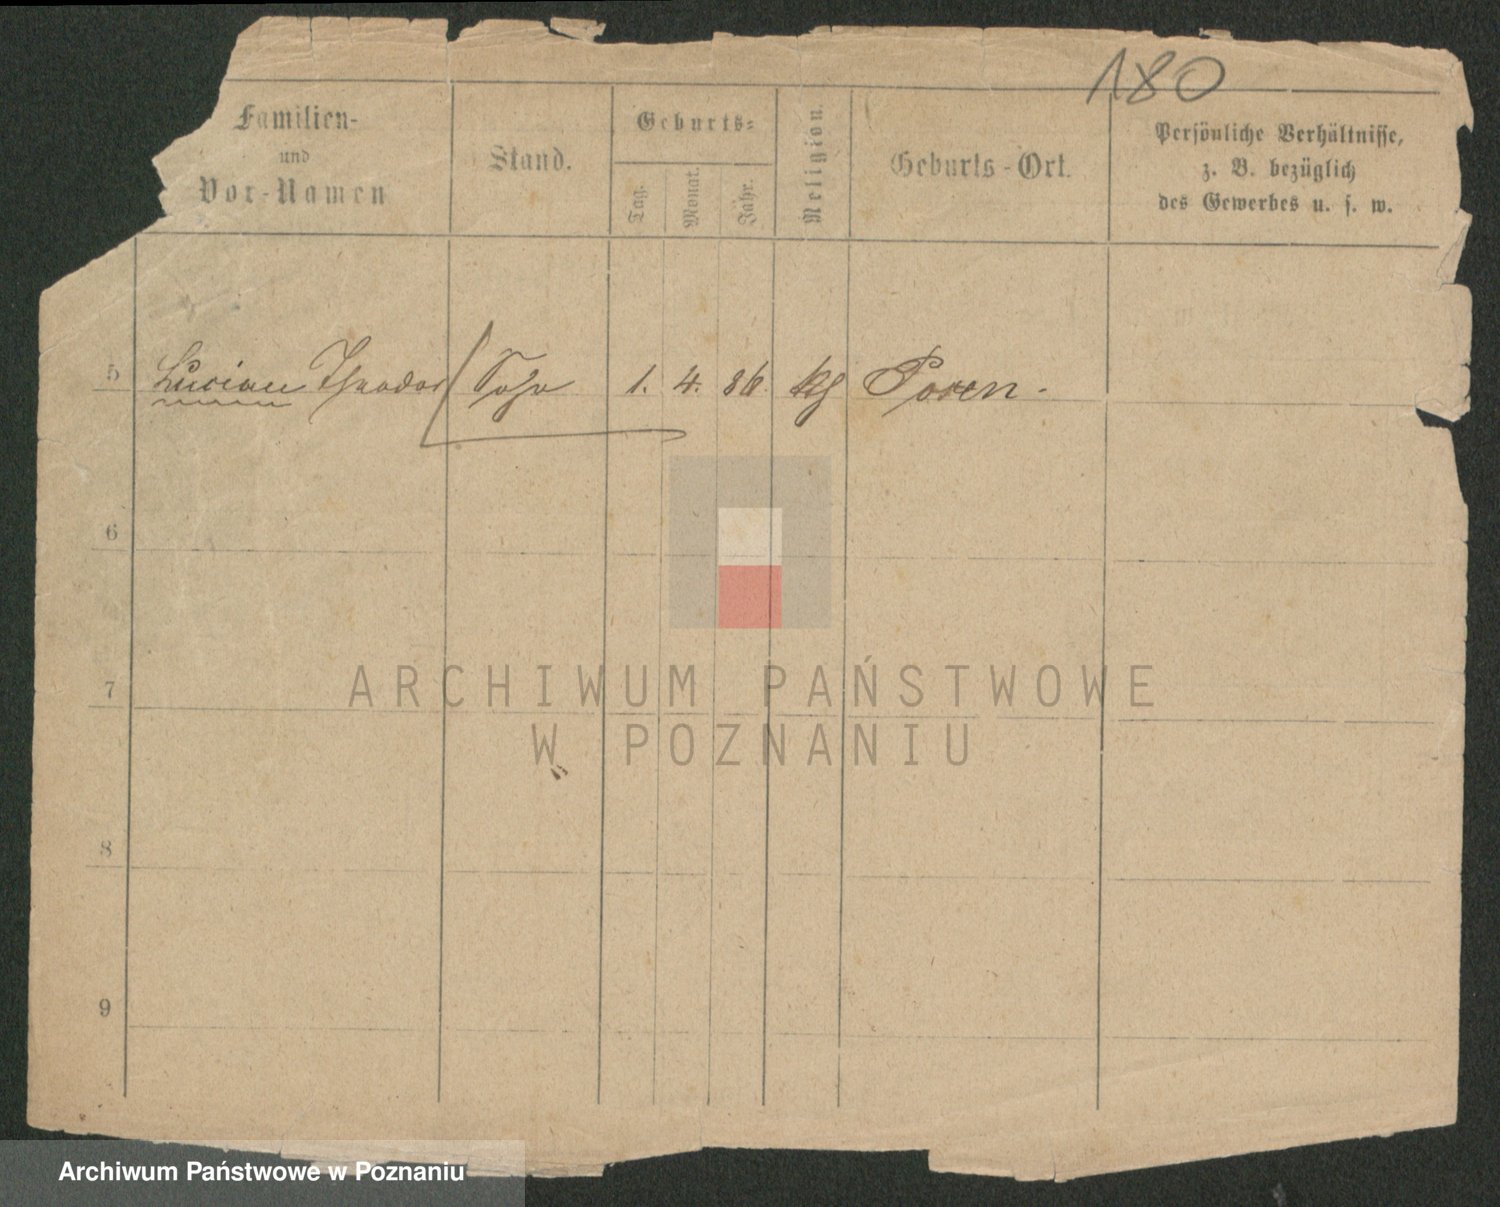 180
Familien-
und
Vor-Namen
Stand.
Geburts-
Tag.
Monat.
Jahr.
Religion.
Geburts-Ort.
Persönliche Verhältnisse,
z. B. bezüglich
des Gewerbes u. s. w.
5 Lucian Theodor Sohn 1. 4. 86. kth Posen.
6
7
8
9
ARCHIWUM PAŃSTWOWE
W POZNANIU
Archiwum Państwowe w Poznaniu